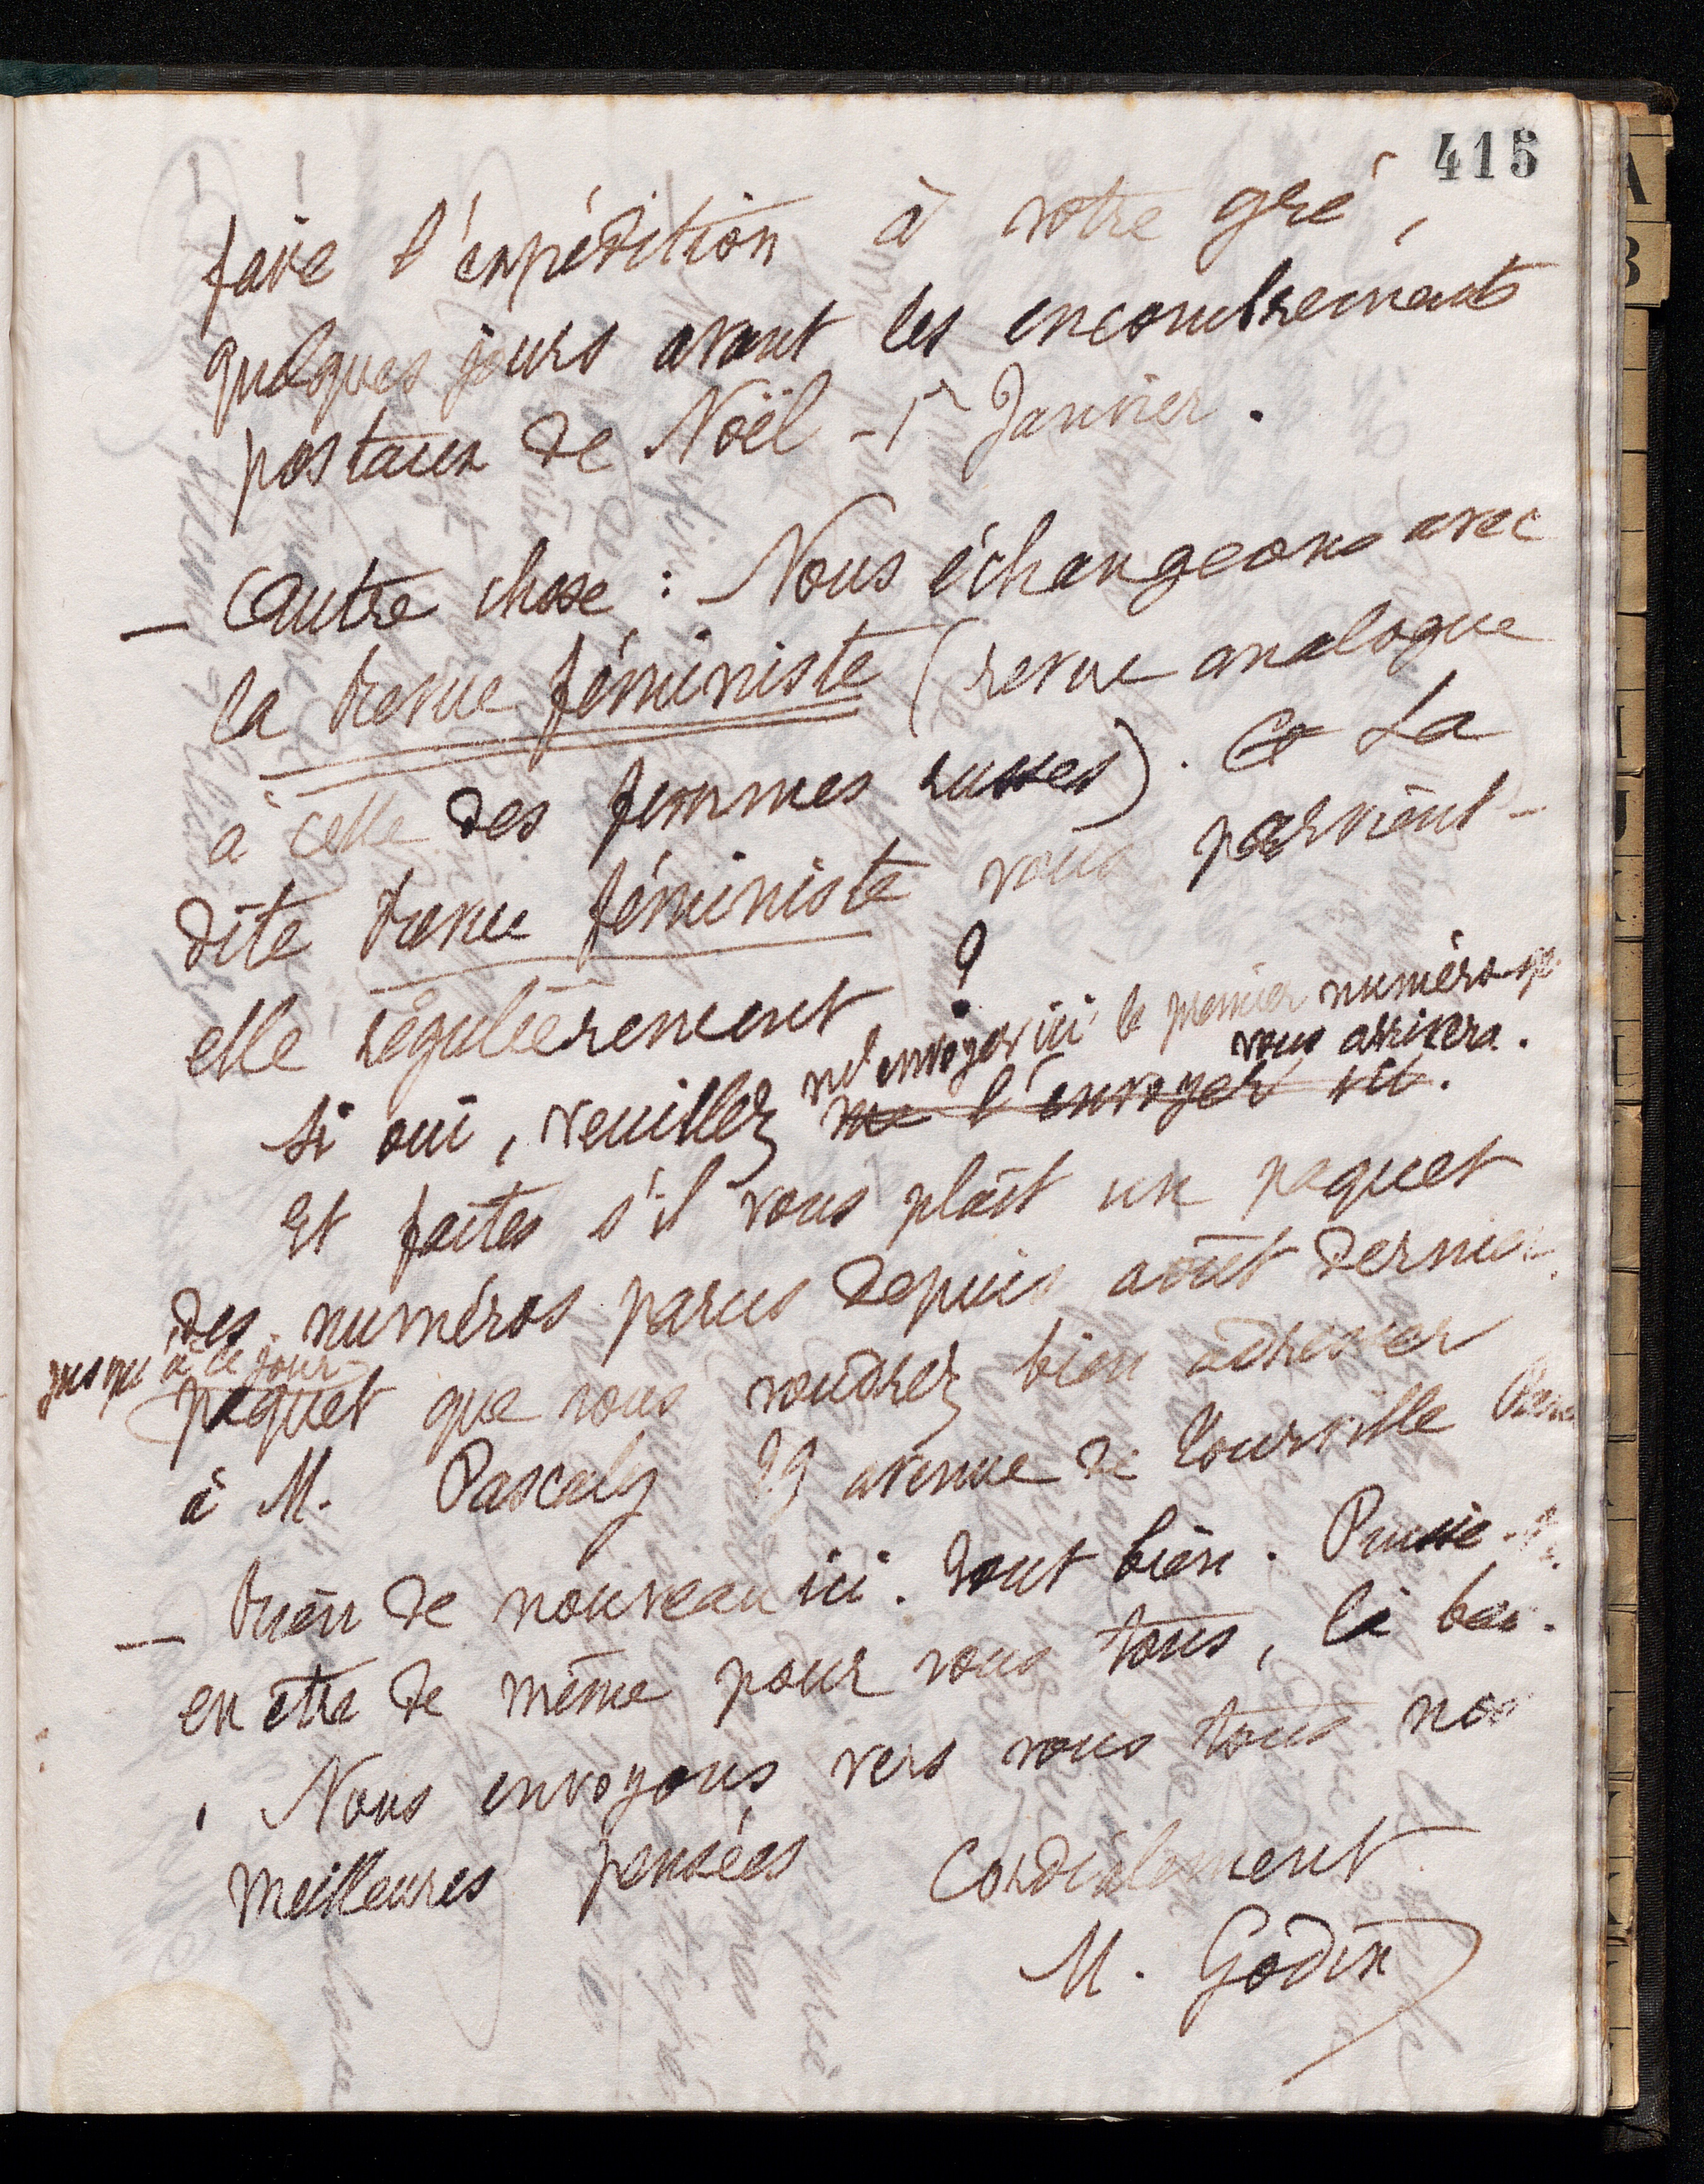 415
faire l'expédition à votre gré,
quelques jours avant les encombrements
postaux de Noël - 1r Janvier.
— Autre chose : Nous échangeons avec
la Revue féministe (revue analogue
à celle des femmes russes). Ce La
dite Revue féministe vous parvient-
elle régulièrement ?
m'envoyer ici le premier numéro qui
vous arrivera.
Si oui, veuillez me l'envoyer ici.
Et faites s'il vous plaît un paquet
des numéros parus depuis août dernier,
jusqu'à ce jour
paquet que vous voudrez bien adresser
à M. Pascaly 29 avenue de Tourville Paris
— Rien de nouveau ici. Tout bien. Puisse-t-il
en être de même pour vous tous, là bas.
Nous envoyons vers vous tous nos
meilleures pensées Cordialement
M. Godin